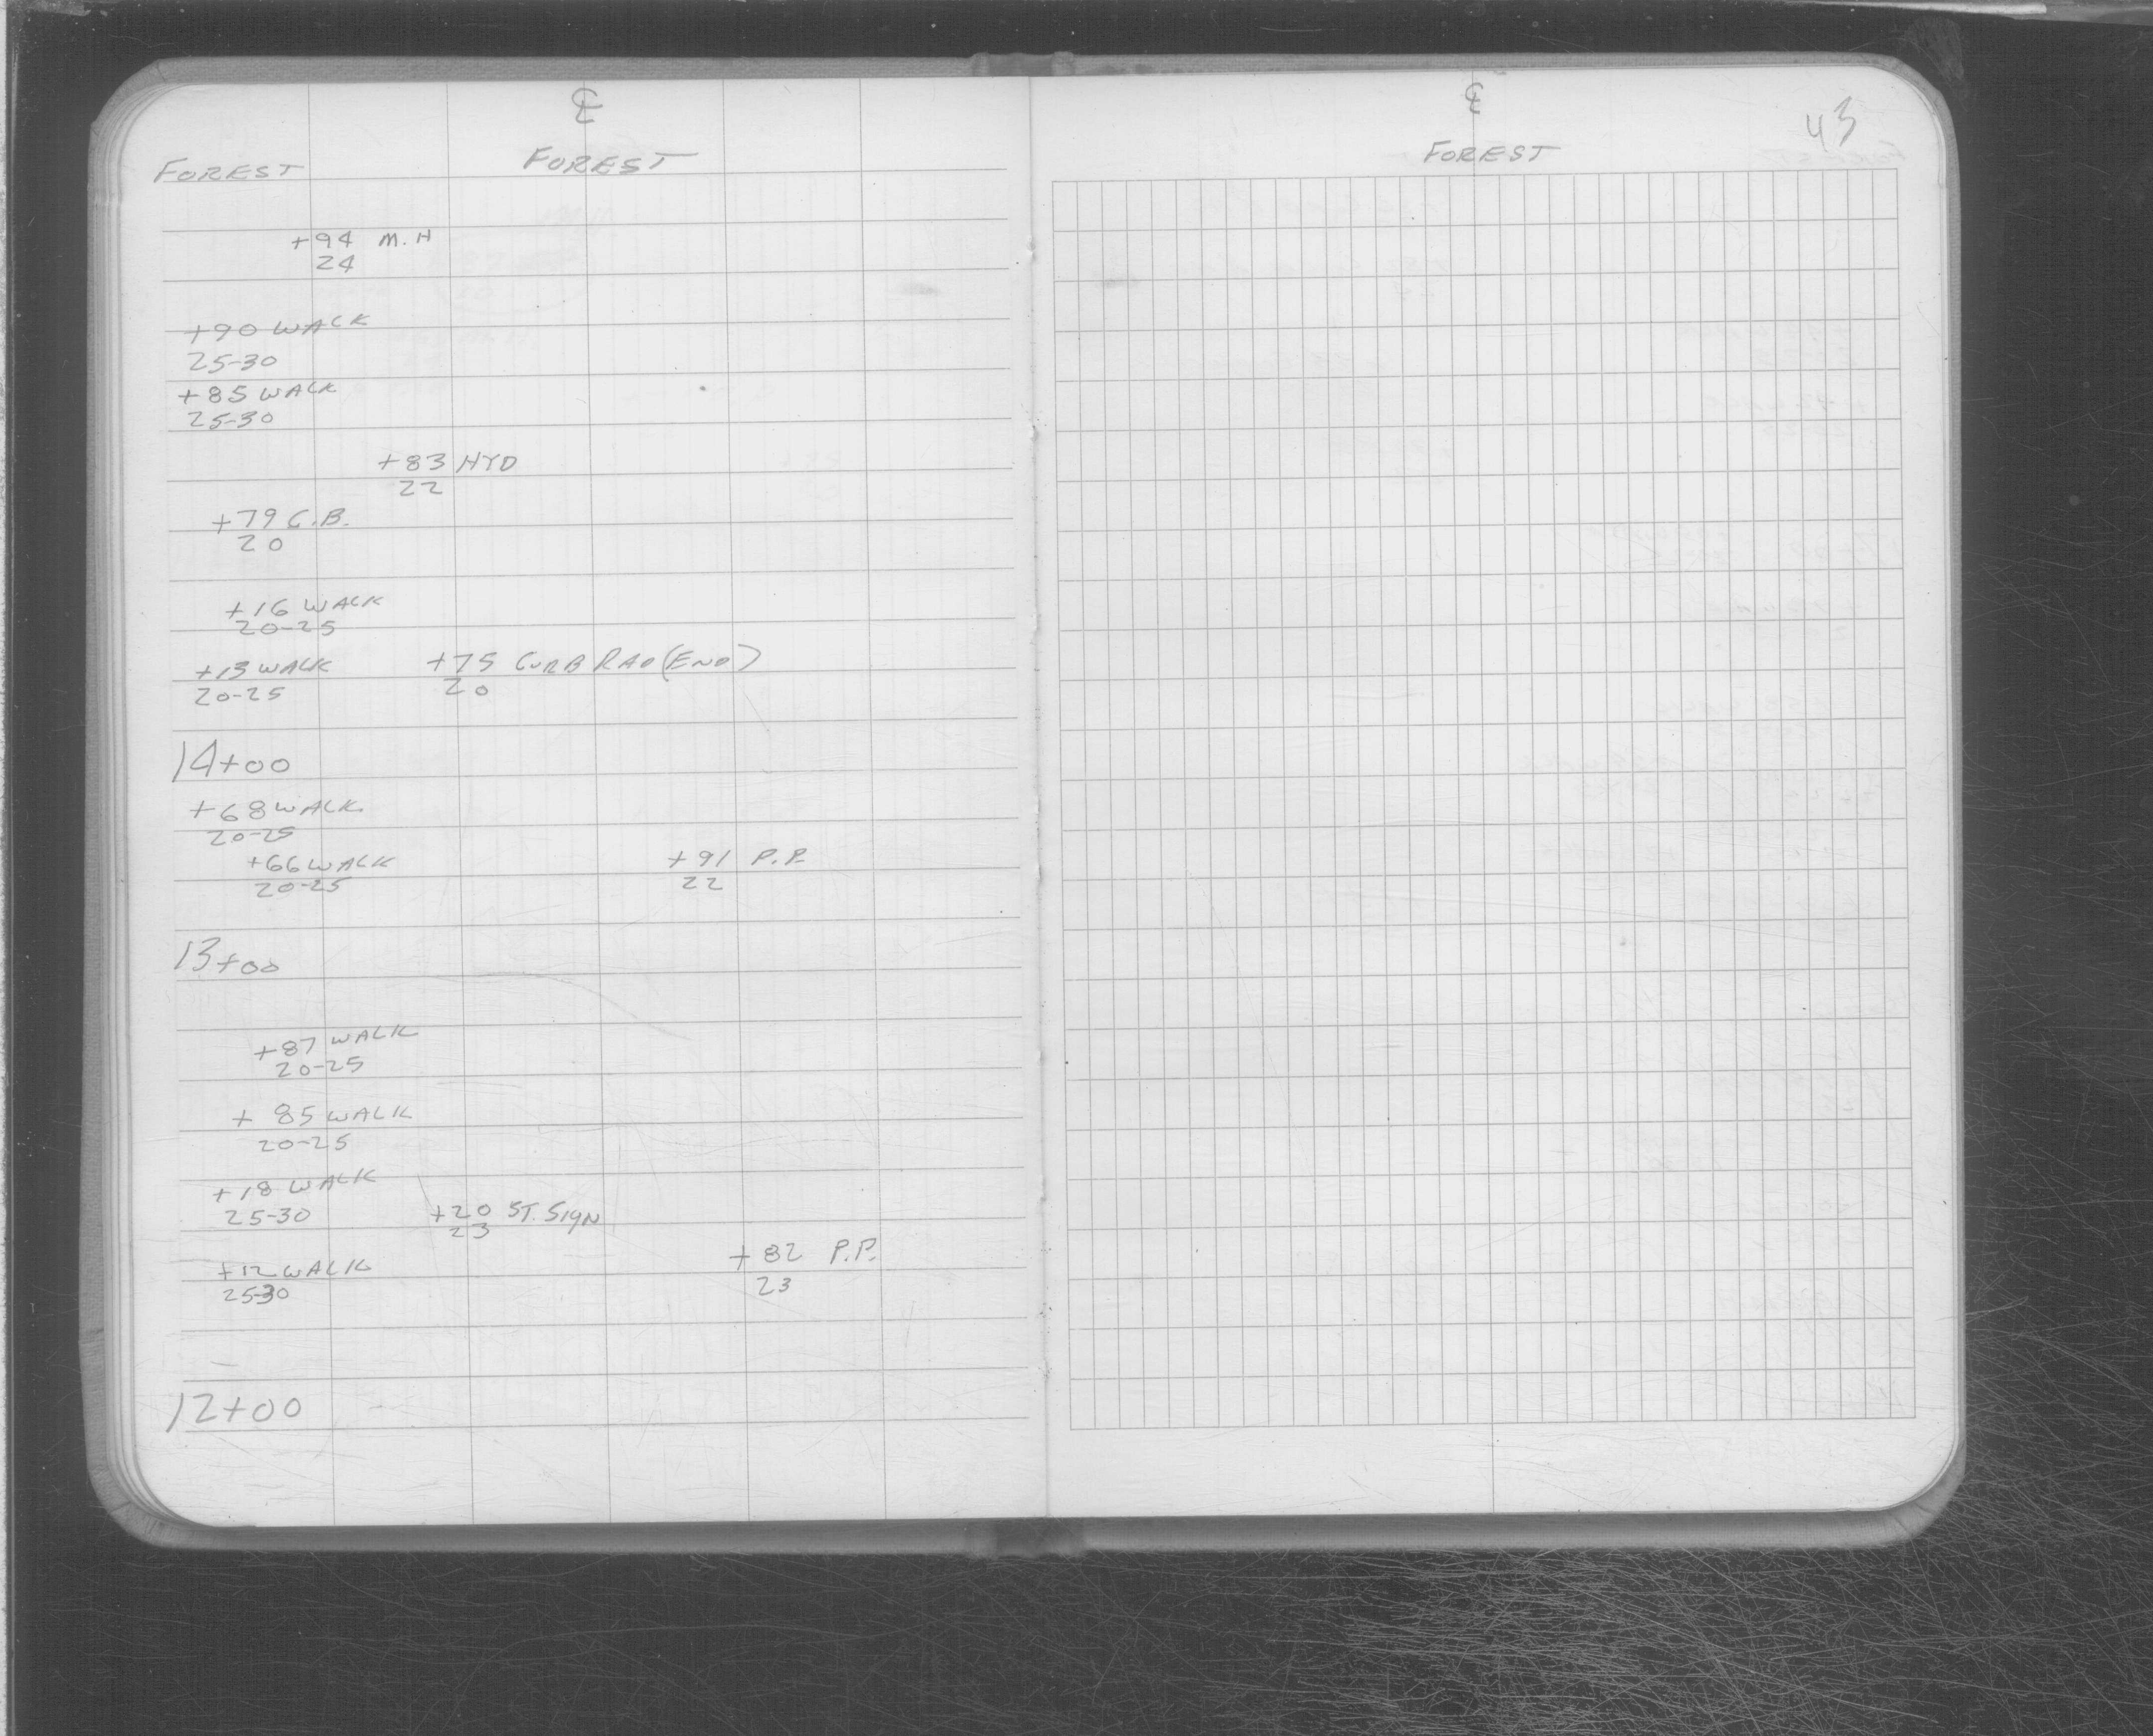 ℄
FOREST FOREST
+94 M.H
24
+90 WALK
25-30
+85 WALK
25-30
+83 HYD
22
+79 C.B.
20
+16 WALK
20-25
+13 WALK +75 CURB RAD (END)
20-25 20
14+00
+68 WALK
20-25
+66 WALK +91 P.P.
20-25 22
13+00
+87 WALK
20-25
+ 85 WALK
20-25
+18 WALK
25-30 +20 ST. SIGN
23
+12 WALK +82 P.P.
25-30 23
12+00
℄ 43
FOREST